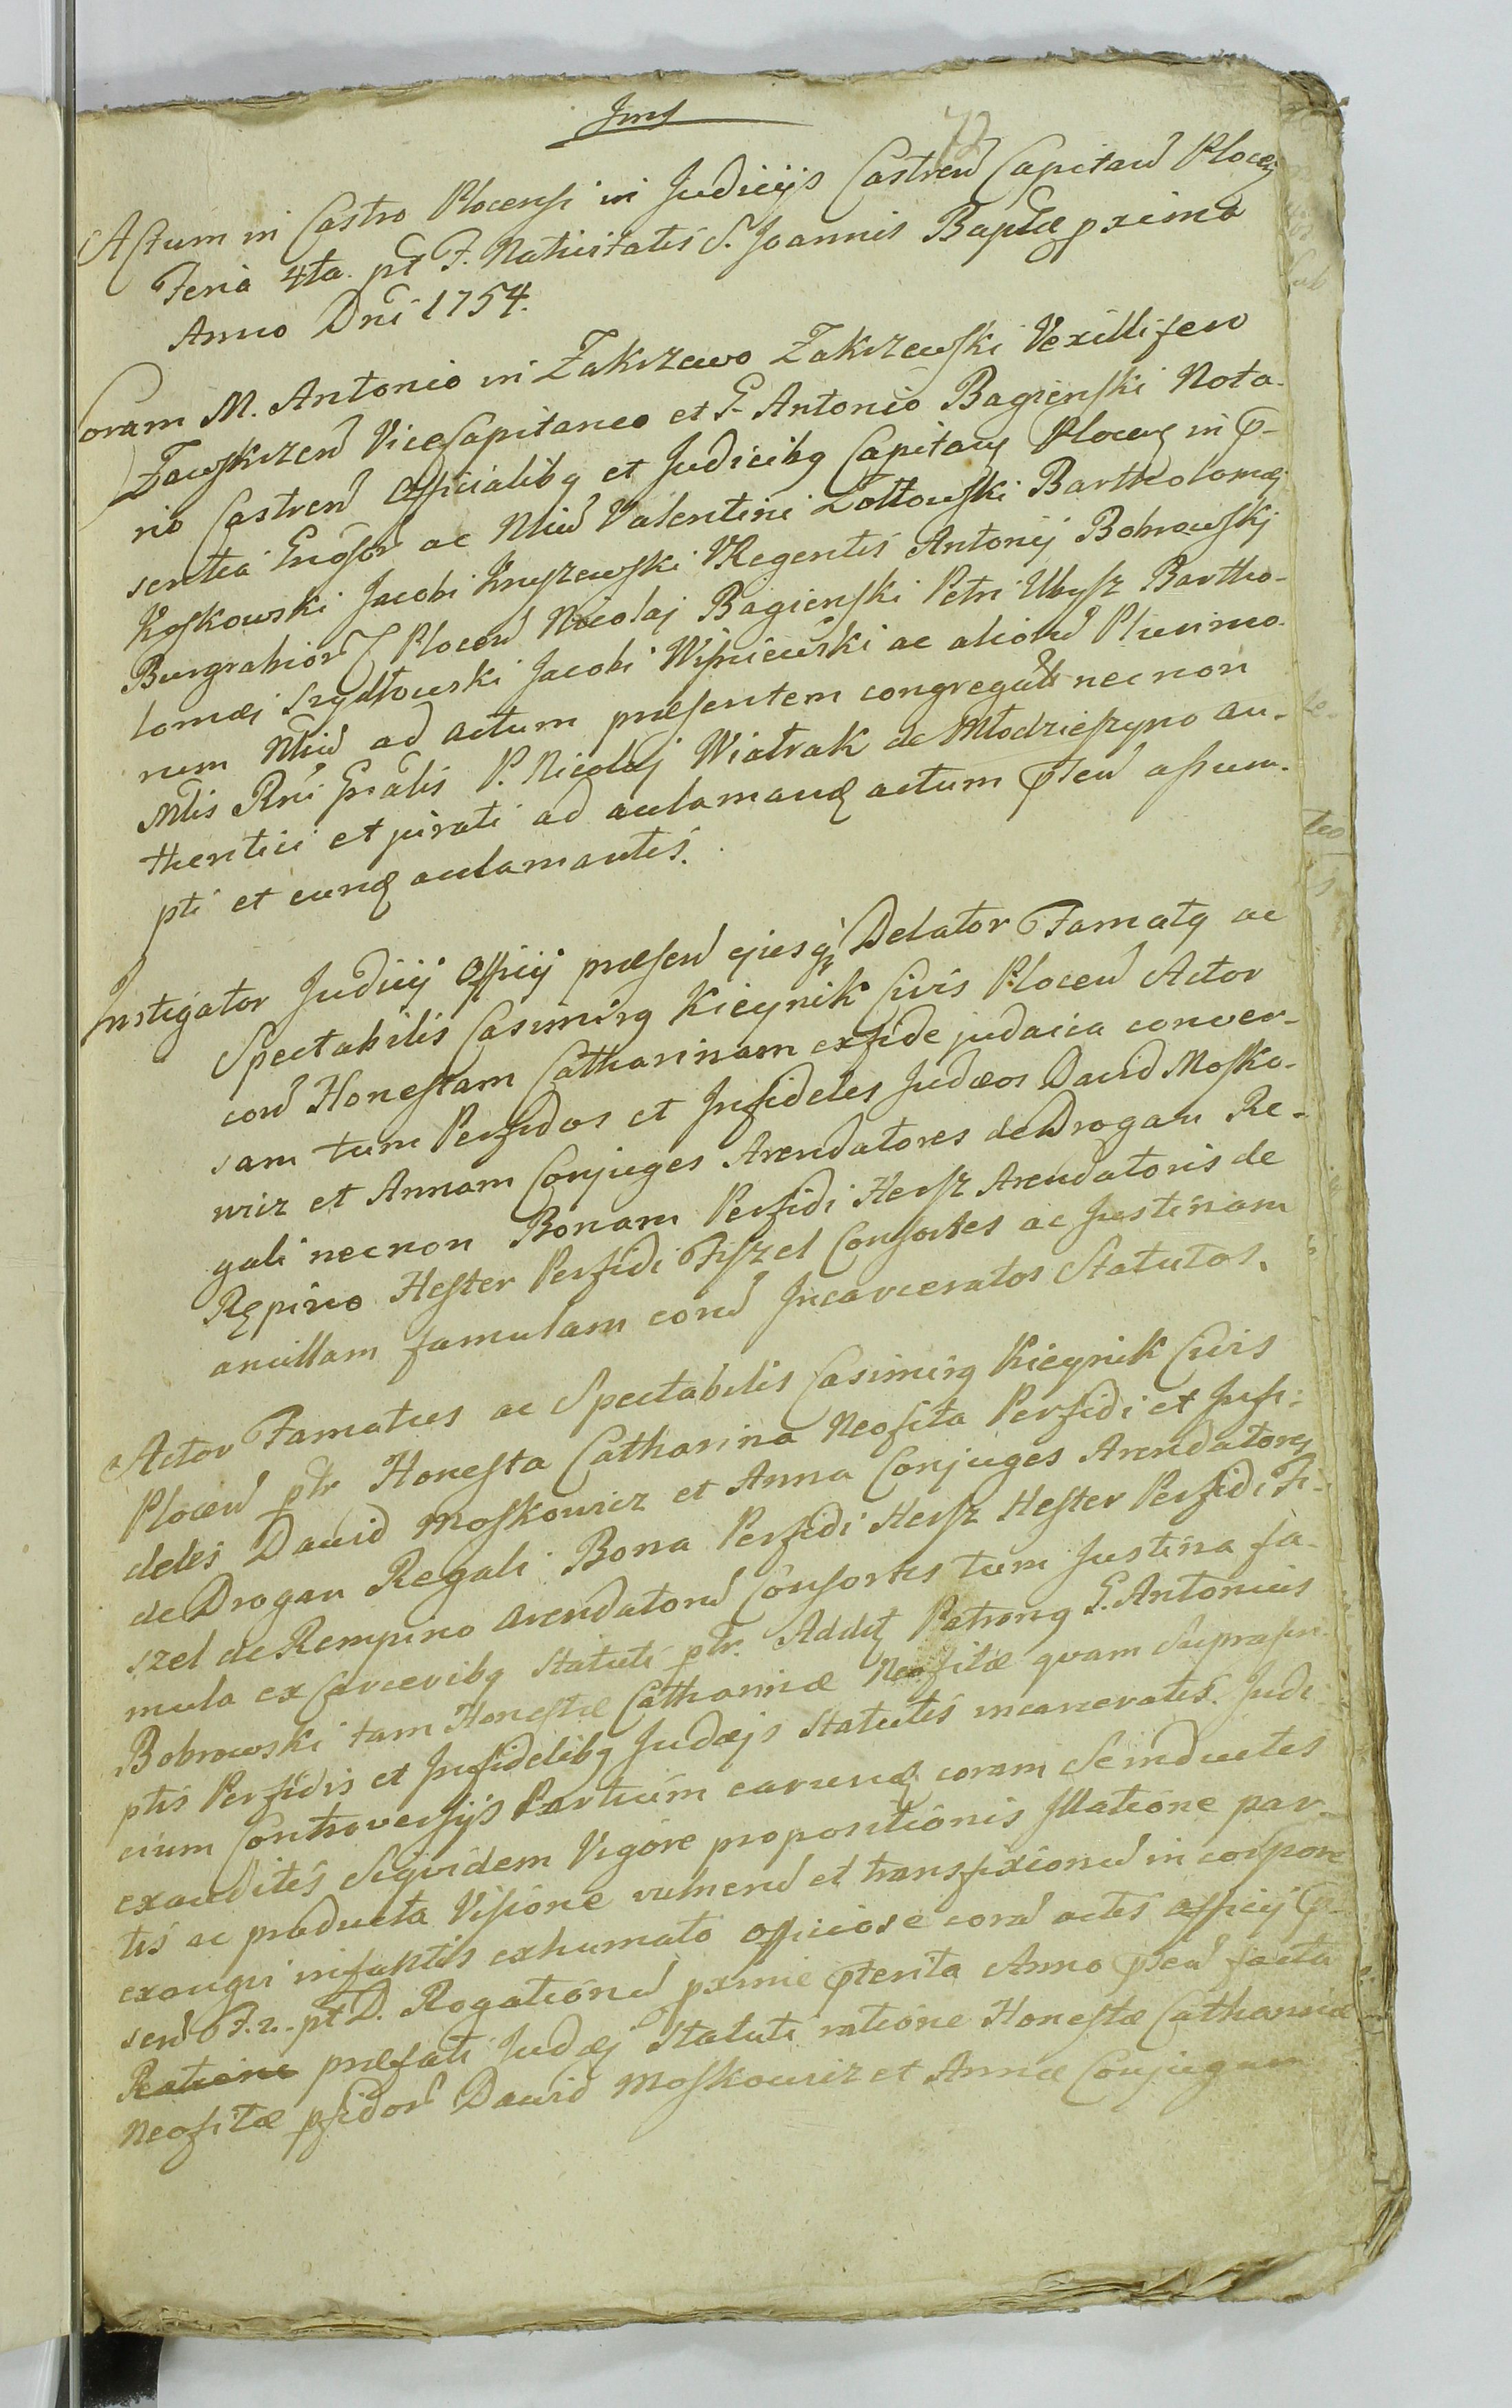 Jms
72
Actum in Castro Plocensi in Judicijs Castren Capitan Plocen
Feria 4ta. pt F. Nativitatis S. Joannis Baptæ proximâ
Anno Dni 1754.
Coram M. Antonio in Zakrzewo Zakrzewski Vexillifero
Zawskrzen ViceCapitaneo et G. Antonio Bagienski Nota-
rio Castren Officialibq et Judicibq Capitan Plocen in p-
sentia Grosor ac Nliu Valentini Zołtowski Bartholomæj
Koskowski Jacobi Kruszewski VRegentis Antonij Bobrowskj
Burgrabior C Plocen Nicolaj Bagienski Petri Ubysz Bartho-
lomæi Szydłowski Jacobi Wisniewski ac aliorũ Plurimo-
rum Nliũ ad actum præsentem congregator necnon
Mtis Rni Gnâlis P. Nicolaj Wiatrak de Młodzieszyno au-
thentici et jurati ad aclamand actum pten assum-
pti et eund aclamantis.
Instigator Judicij Officij præsen ejusq Delator Famatq ac
Spectabilis Casimirq Kieynik Civis Plocen Actor
con Honestam Catharinam exfide judaica conver-
sam tum Perfidos et Infideles Judæos David Mosko-
wicz et Annam Conjuges Arendatores de Drogan Re-
gali necnon Bonam Perfidi Hersz Arendatoris de
Rępino Hester Perfidi Fiszel Consortes ac Justinam
ancillam famulam cond Incarceratos Statutos.
Actor Famatus ac Spectabilis Casimirq Kieynik Civis
Plocen ptr Honesta Catharina Neofita Perfidi et Infi-
deles Dawid Moskowicz et Anna Conjuges Arendatores
de Drogan Regali Bona Perfidi Hersz Hester Perfidi Fi-
szel de Rempino arendatorũ Consortes tum Justina fa-
mula ex Carceribq Statuti ptr. Additq Patronq G. Antonius
Bobrowski tam Honestæ Catharinæ Neofitæ qvam Suprascri-
ptis Perfidis et Infidelibq Judæjs Statutis incarceratis. Judi-
cium Controversijs Partium earund coram Se inductis
exauditis Siqvidem Vigore propositionis Illatione par-
tis ac producta Visione vulnerũ et transfixionũ in corpore
exangvi infantis exhumato Officiose coram actis officij p-
sen F. 2. pt D. Rogationũ pxime pterita Anno psen facta
Ratione præfati Judæj Statuti ratione Honestæ Catharinæ
Neofitæ pfidor Dawid Moskowicz et Annæ Conjugum